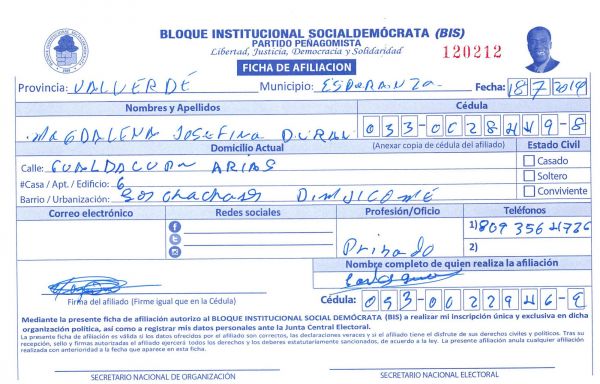 BLOQUE INSTITUCIONAL SOCIALDEMÓCRATA (BIS)
PARTIDO PEÑAGOMISTA
Libertad, Justicia, Democracia y Solidaridad
120212
FICHA DE AFILIACION
Provincia: VALVERDE Municipio: ESPERANZA Fecha: 18/7/2019
Nombres y Apellidos Cédula
MAGDALENA JOSEFINA DURAN 033-0028449-8
Domicilio Actual (Anexar copia de cédula del afiliado) Estado Civil
Calle: ARIAS Casado
#Casa / Apt. / Edificio: 6 Soltero
Barrio / Urbanización: Los Conviviente
Correo electrónico Redes sociales Profesión/Oficio Teléfonos
1) 809 356 4726
Privado 2)
Nombre completo de quien realiza la afiliación
Firma del afiliado (Firme igual que en la Cédula) Cédula:
Mediante la presente ficha de afiliación autorizo al BLOQUE INSTITUCIONAL SOCIAL DEMÓCRATA (BIS) a realizar mi inscripción única y exclusiva en dicha
organización política, así como a registrar mis datos personales ante la Junta Central Electoral.
La presente ficha de afiliación es válida si los datos ofrecidos por el afiliado son correctos, las declaraciones veraces y si el afiliado tiene el disfrute de sus derechos civiles y políticos. Tras su
recepción, sello y firmas autorizadas el afiliado ejercerá todos los derechos y los deberes estatutariamente sancionados, de acuerdo a la ley. La presente afiliación anula cualquier afiliación
realizada con anterioridad a la fecha que aparece en esta ficha.
SECRETARIO NACIONAL DE ORGANIZACIÓN SECRETARIO NACIONAL ELECTORAL